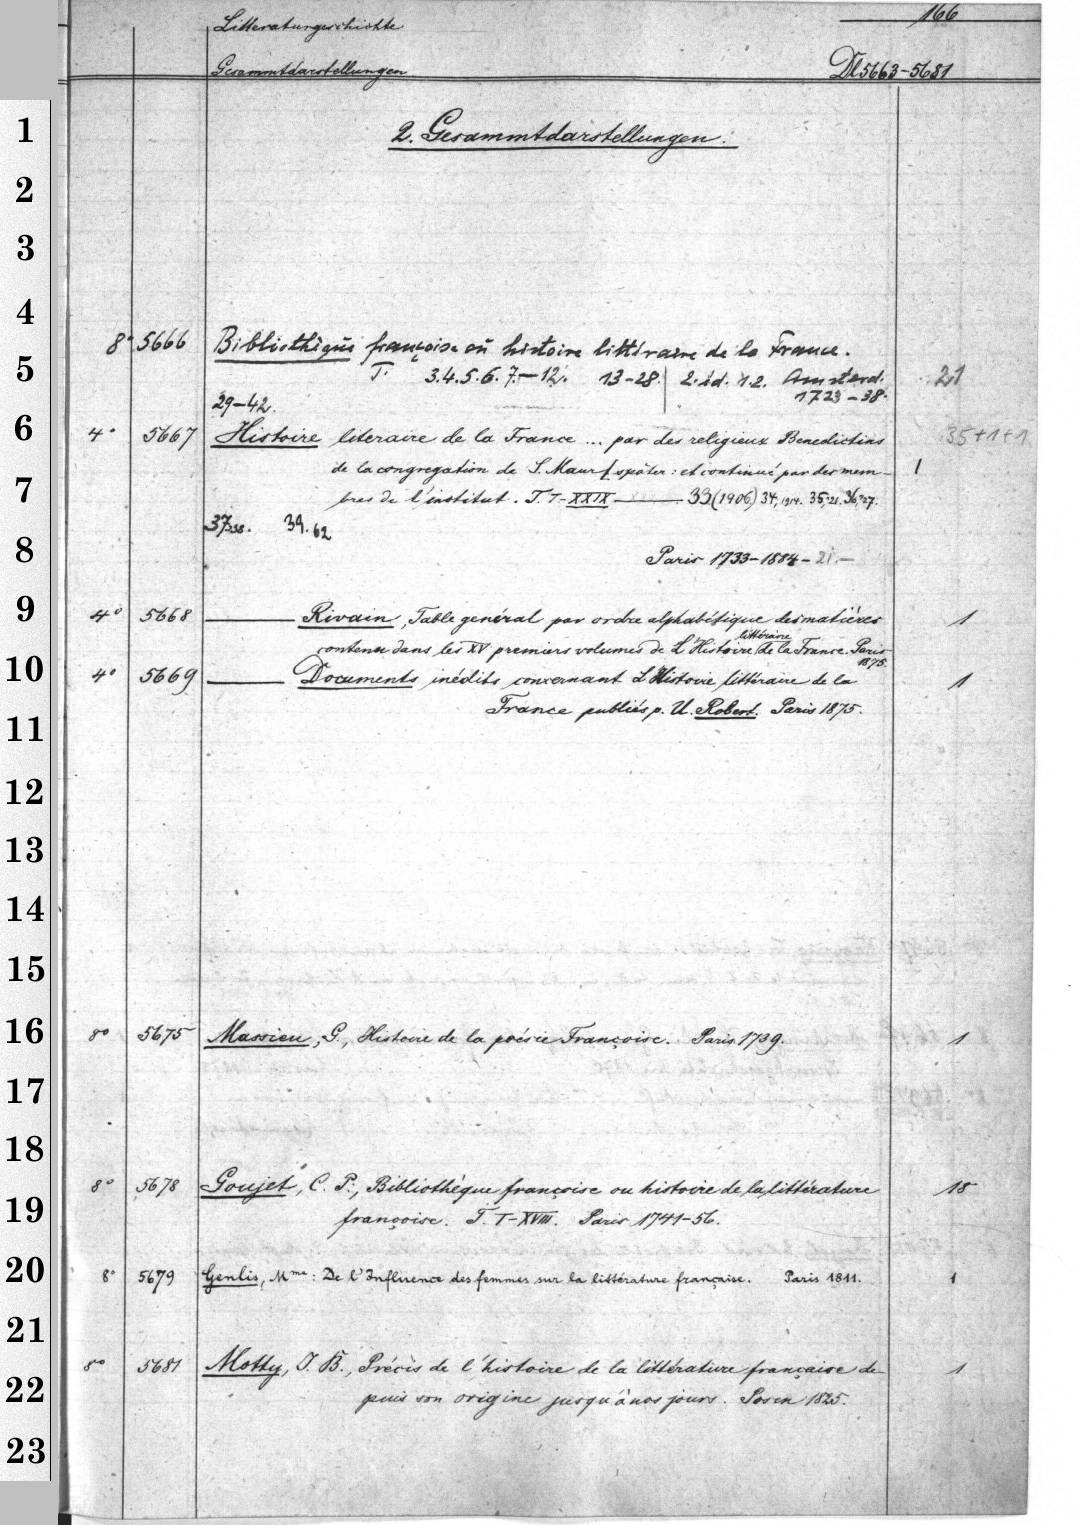 166
Litteraturgeschichte
Gesammtdarstellungen Dl 5663-5681
1
2. Gesammtdarstellungen.
2
3
4
8° 5666 Bibliothèque françoise ou histoire littéraire de la France.
5
T. 3.4.5.6.7.-12. 13-28. 2. éd. 1.2. Amsterd. 21
1723-38.
29-42.
6
4° 5667 Histoire literaire de la France ... par des religieux Benedictins 35+1+1
de la congregation de S. Maur [später: et continué par des mem- 1
7
bres de l'institut. T. I-XXIX 33 (1906) 34, 1914. 35, 21. 36, 27.
37, 38. 39. 62
8
Paris 1733-1884- 21.-
9
4° 5668 Rivain, Table général par ordre alphabétique des matières 1
contenu dans les XV premiers volumes de L'Histoire littéraire de la France. Paris
1875.
10
4° 5669 Documents inédits concernant L'Histoire littéraire de la 1
France publiés p. U. Robert. Paris 1875.
11
12
13
14
15
16
8° 5675 Massieu, G., Histoire de la poésie Françoise. Paris 1739. 1
17
18
8° 5678 Goujet, C. P., Bibliothéque françoise ou histoire de la littérature 18
19
françoise. T. I-XVIII. Paris 1741-56.
20
8° 5679 Genlis, Mme: De l'Influence des femmes sur la littérature française. Paris 1811. 1
21
8° 5681 Motty, J. B., Précis de l'histoire de la littérature française de 1
22
puis son origine jusqu'à nos jours. Posen 1825.
23